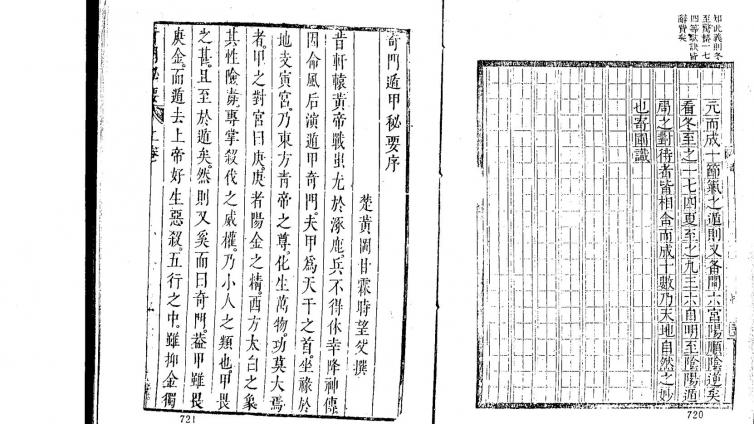 知此義則冬
至驚蟄一七
四等歌訣皆
辭費矣
元而成十節氣之遁則又备間六宮陽順陰逆矣
看冬至之一七四夏至之九三六自明至陰陽遁
局之對待者皆相合而成十數乃天地自然之妙
也寄圃識
720
奇門遁甲秘要序
楚黃岡甘霖時望父撰
昔軒轅黃帝戰蚩尤於涿鹿兵不得休幸降神傳
因命風后演遁甲奇門夫甲爲天干之首坐祿於
地支寅宮乃東方青帝之尊化生萬物功莫大焉
者甲之對宮曰庚庚者陽金之精西方太白之象
其性險毒專掌殺伐之威權乃小人之類也甲畏
之甚且至於遁矣然則又奚而曰奇門葢甲雖畏
庚金而遁去上帝好生惡殺五行之中雖抑金獨
奇門秘要 上卷
721